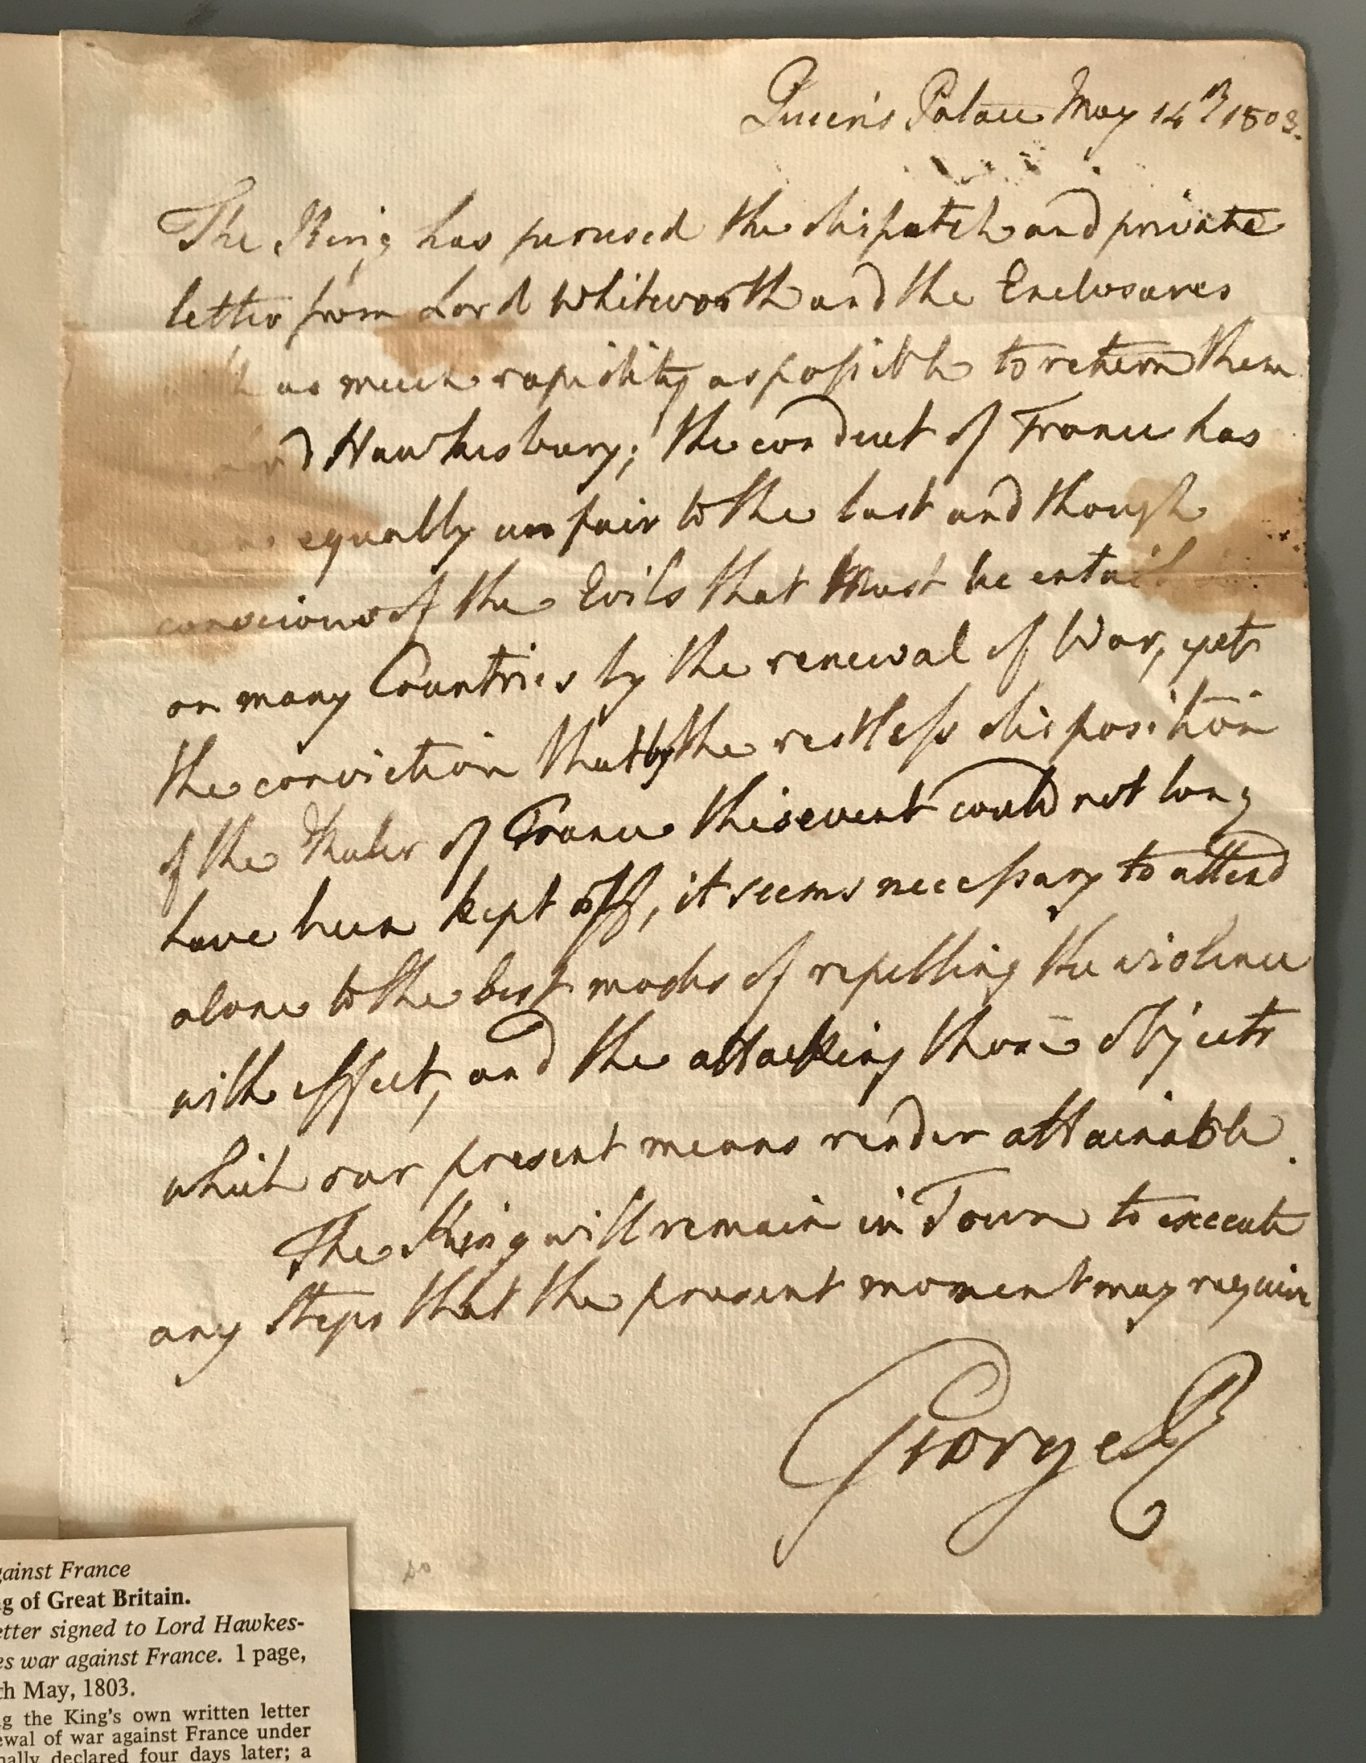 Queen's Palace May 14th 1803.
The King has perused the dispatch and private
letter from Lord Whitworth and the Enclosures
as much rapidity as possible to return them
Hawkesbury; the conduct of France has
equally unfair to the last and though
conscious of the Evils that must be
on many Countries by the renewal of War, yet
the conviction that by the restless disposition
of the Ruler of France this event could not long
have been kept off, it seems necessary to attend
alone to the best modes of repelling the violence
with effect, and the attacking those objects
which our present means render attainable.
The King will remain in Town to execute
any steps that the present moment may require
George R
gainst France
g of Great Britain.
etter signed to Lord Hawkes-
es war against France. 1 page,
th May, 1803.
g the King's own written letter
ewal of war against France under
nally declared four days later; a